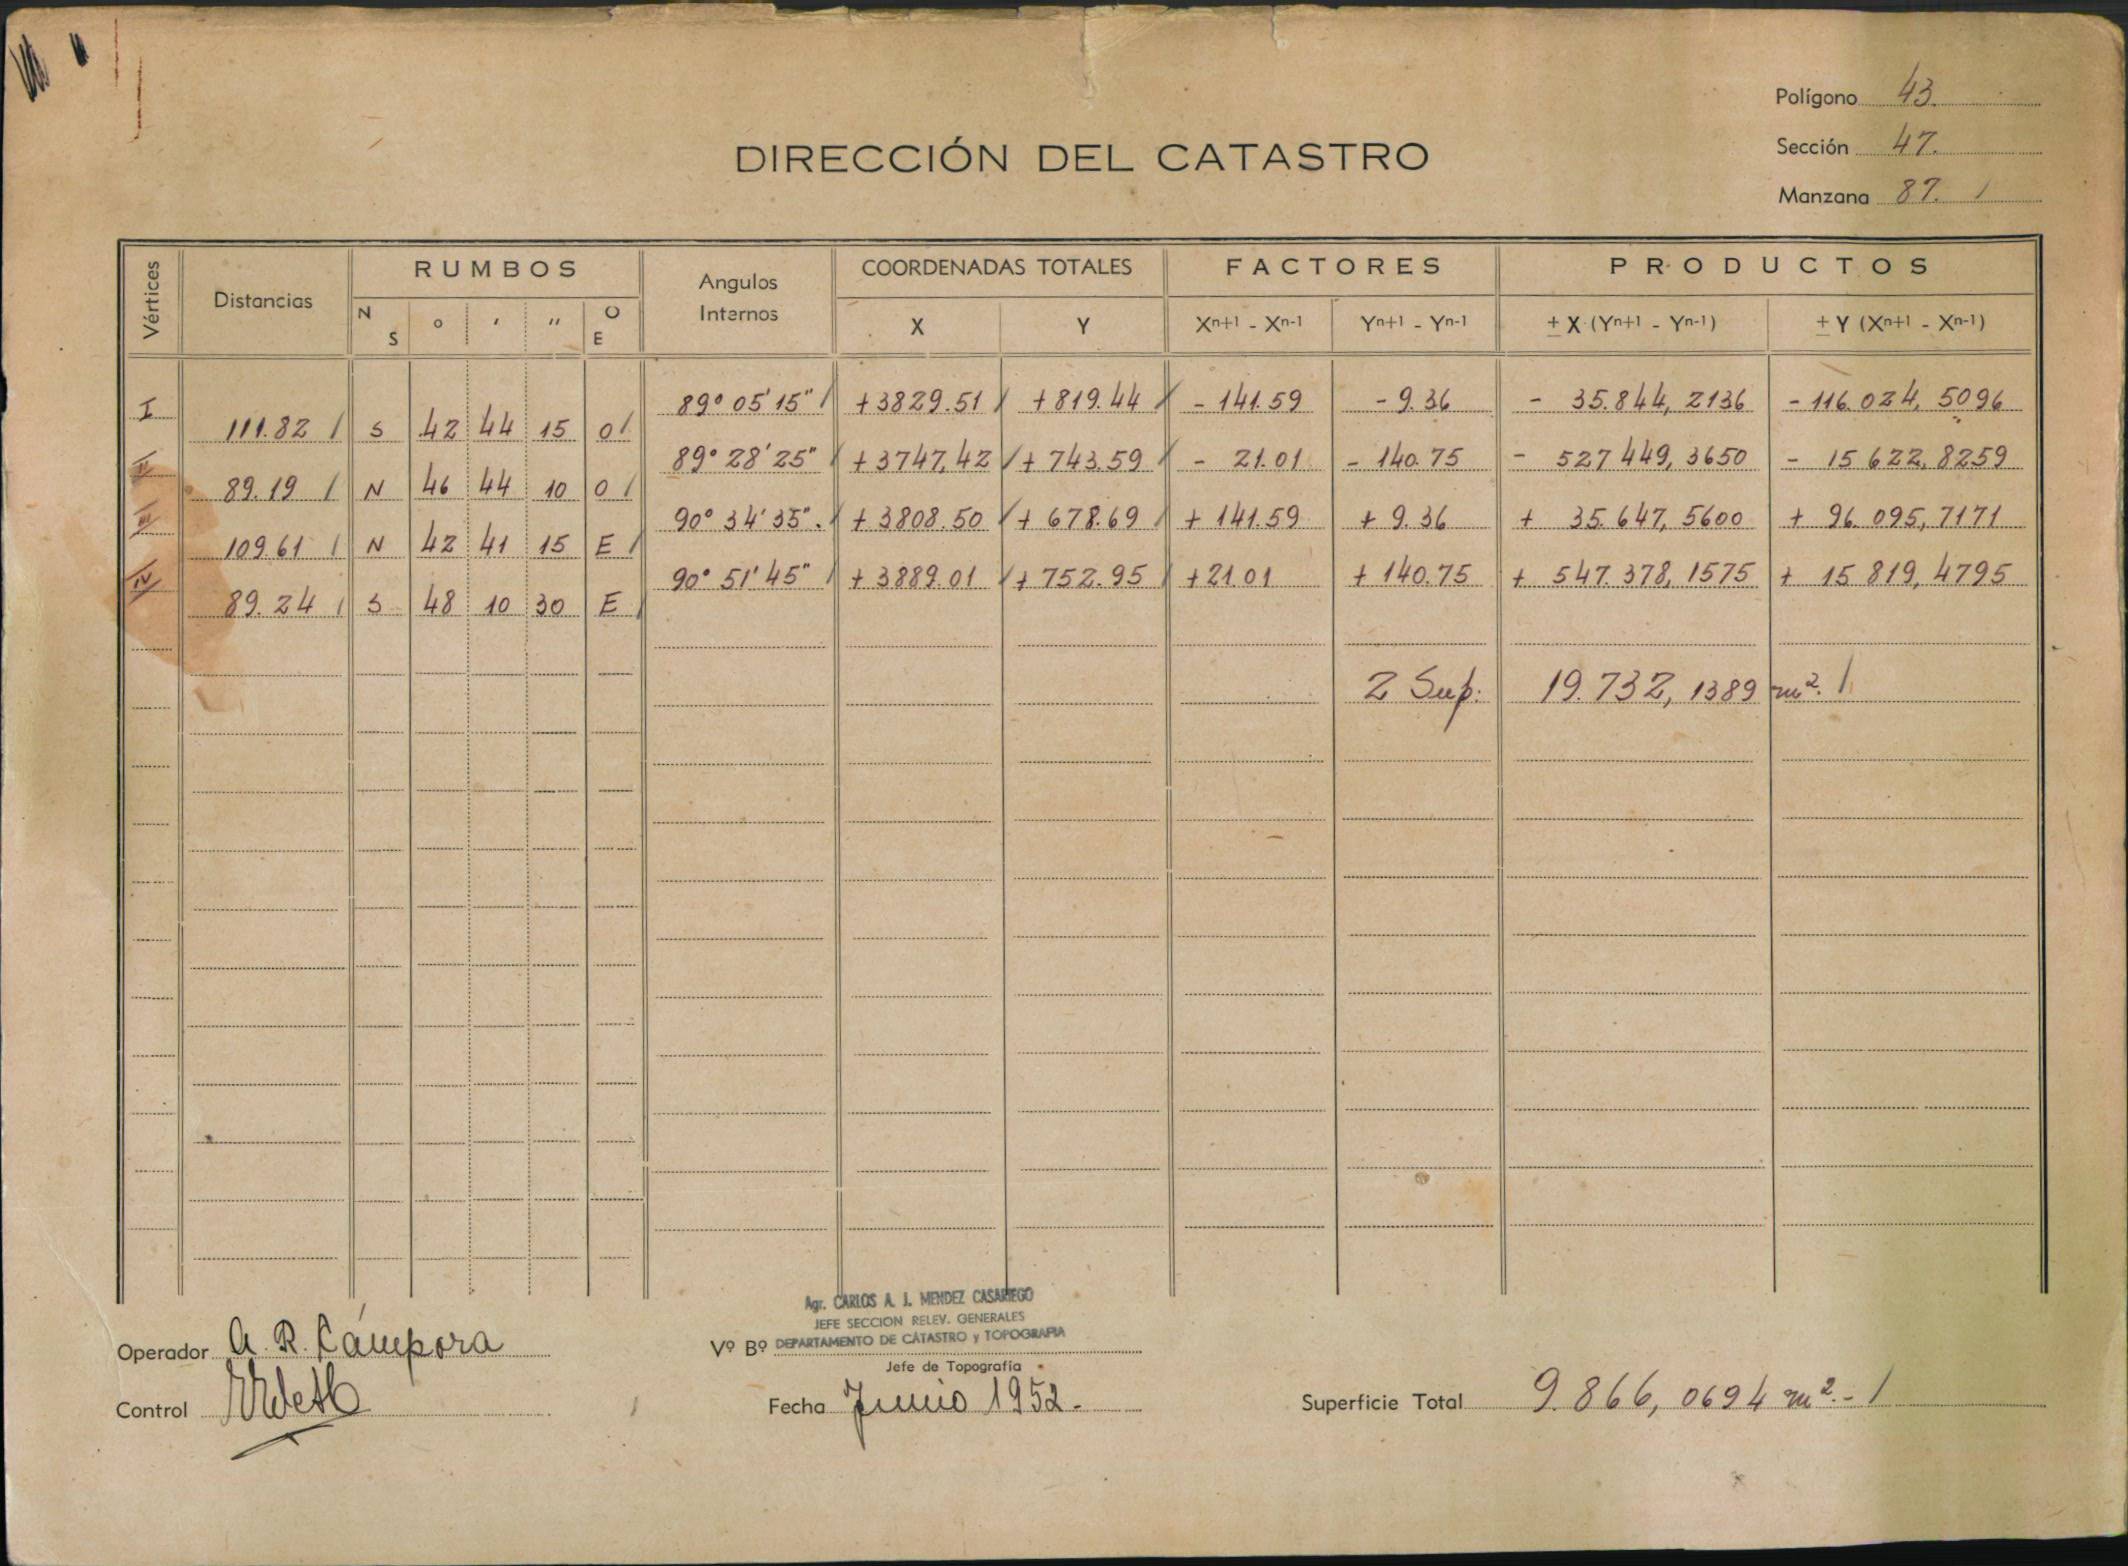 Polígono 43.
DIRECCIÓN DEL CATASTRO
Sección 47.
Manzana 87. /
Vértices
Distancias
RUMBOS
N S ° ′ ″ O E
Angulos Internos
COORDENADAS TOTALES
X Y
FACTORES
Xn+1 - Xn-1 Yn+1 - Yn-1
PRODUCTOS
± X (Yn+1 - Yn-1) ± Y (Xn+1 - Xn-1)
I 89° 05' 15" / +3829.51 / +819.44 / - 141.59 - 9.36 - 35.844,2136 - 116.024,5096
111.82 / S 42 44 15 O /
II 89° 28' 25" / + 3747,42 / + 743.59 / - 21.01 - 140.75 - 527 449,3650 - 15 622,8259
89.19 / N 46 44 10 O /
III 90° 34' 35". / + 3808.50 / + 678.69 / + 141.59 + 9.36 + 35.647,5600 + 96.095,7171
109.61 / N 42 41 15 E /
IV 90° 51' 45" / + 3889.01 / + 752.95 / +21.01 + 140.75 + 547.378,1575 + 15 819,4795
89.24 / S 48 10 30 E /
2 Sup. 19.732,1389 m². /
Agr. CARLOS A. J. MENDEZ CASARIEGO
JEFE SECCION RELEV. GENERALES
DEPARTAMENTO DE CATASTRO y TOPOGRAFIA
Operador A. R. Cámpora
Vº Bº
Jefe de Topografía
Control
Fecha Junio 1952.-
Superficie Total 9.866,0694 m².- /